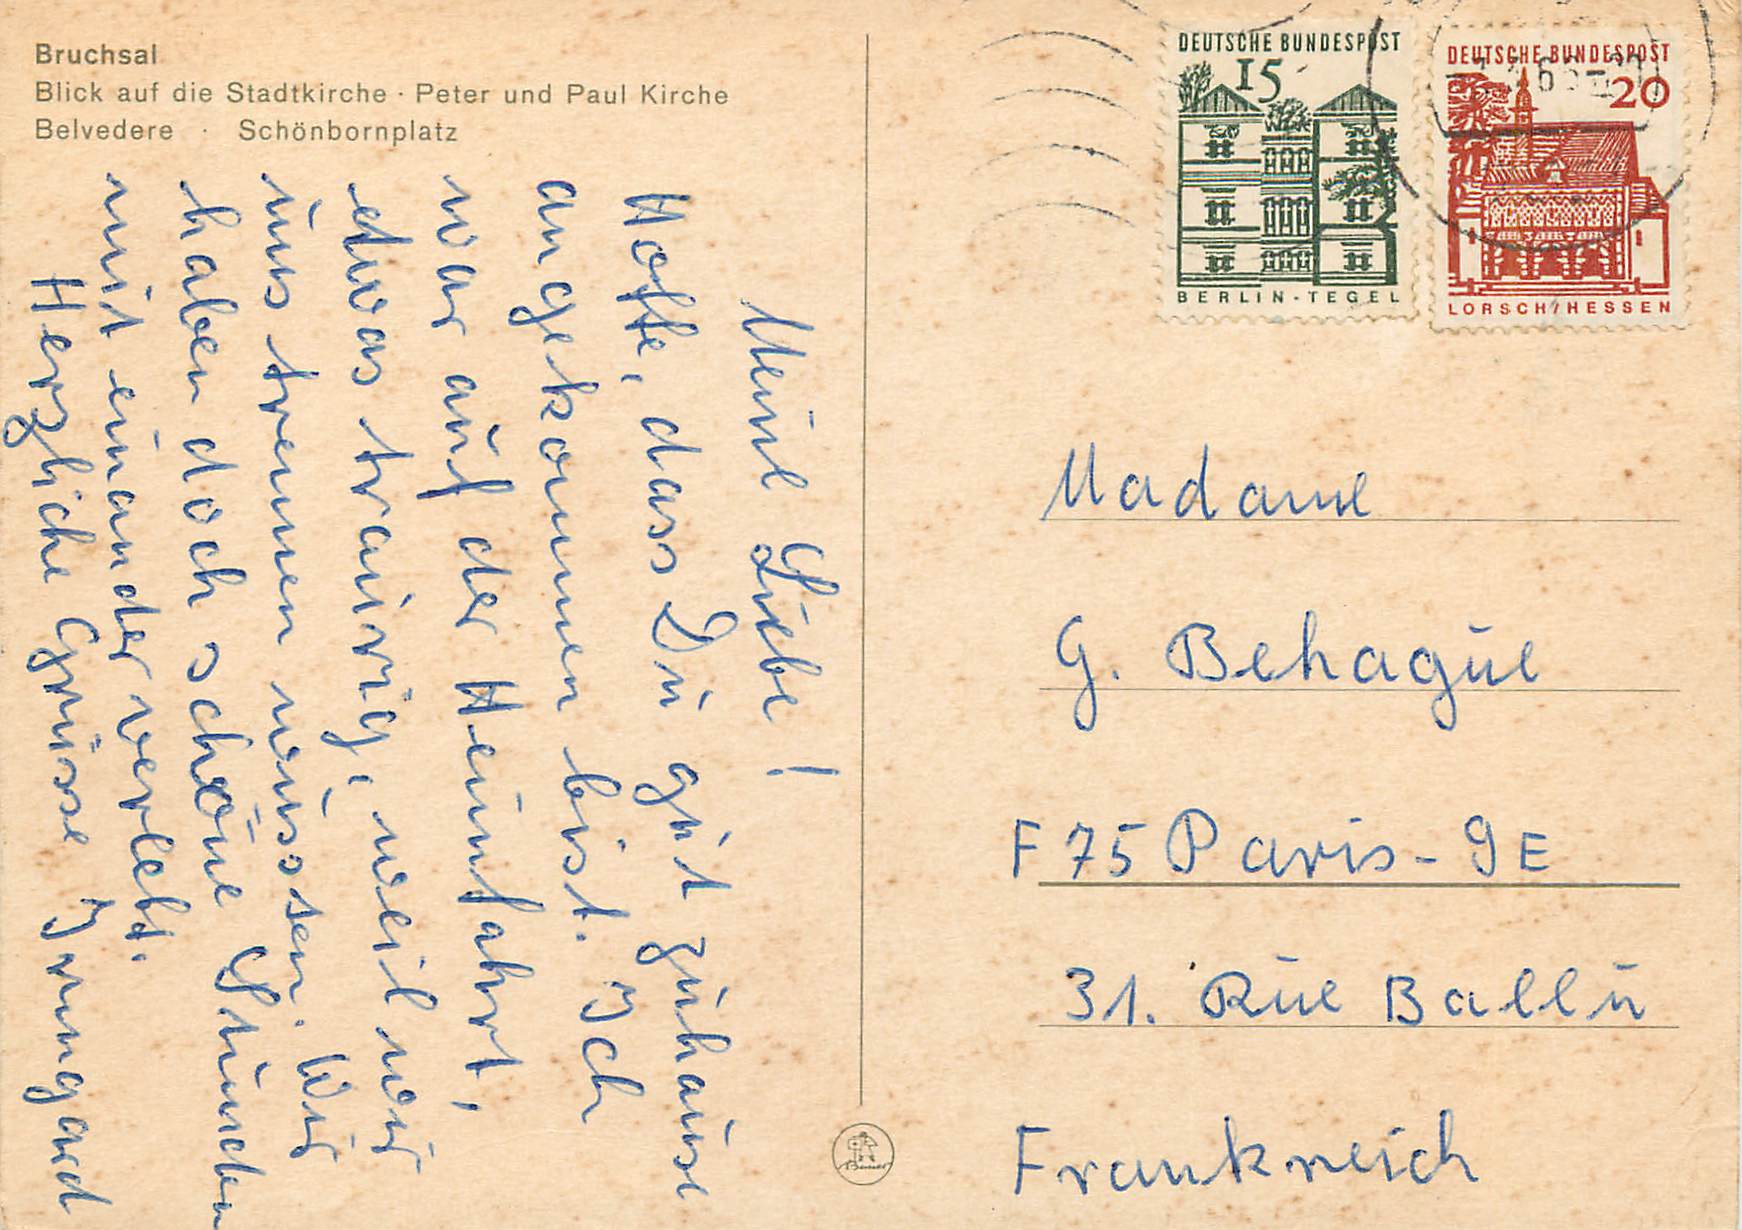 Bruchsal
Blick auf die Stadtkirche · Peter und Paul Kirche
Belvedere · Schönbornplatz
Meine Liebe!
Hoffe, dass Du gut zuhause
angekommen bist. Ich
war auf der Heimfahrt,
etwas traurig, weil wir
uns trennen müssten. Wir
haben doch schöne Stunden
mit einander verlebt.
Herzliche Grüsse Irmgard
DEUTSCHE BUNDESPOST
15
BERLIN-TEGEL
DEUTSCHE BUNDESPOST
20
LORSCH/HESSEN
Madame
G. Behague
F 75 Paris - 9E
31. Rue Ballu
Frankreich
Bauer